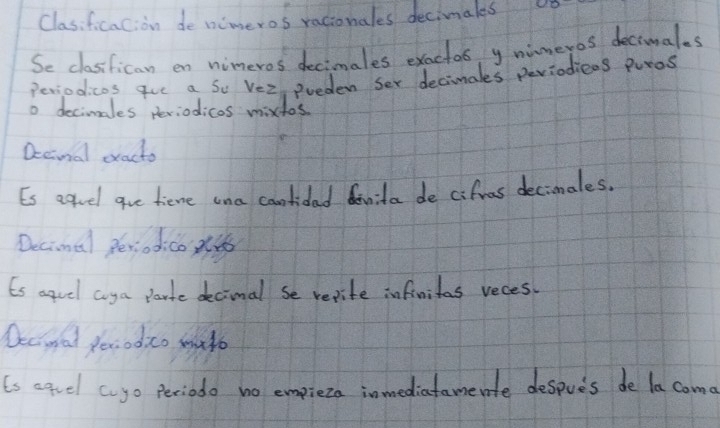 Clasificación de números racionales decimales
Se clasifican en números decimales exactos y números decimales
periodicos que a su vez pueden ser decimales periodicos puros
o decimales periodicos mixtos.
Decimal exacto
Es aquel que tiene una cantidad finita de cifras decimales.
Decimal periodico puro
Es aquel cuya parte decimal se repite infinitas veces.
Decimal periodico mixto
Es aquel cuyo periodo no empieza inmediatamente después de la coma